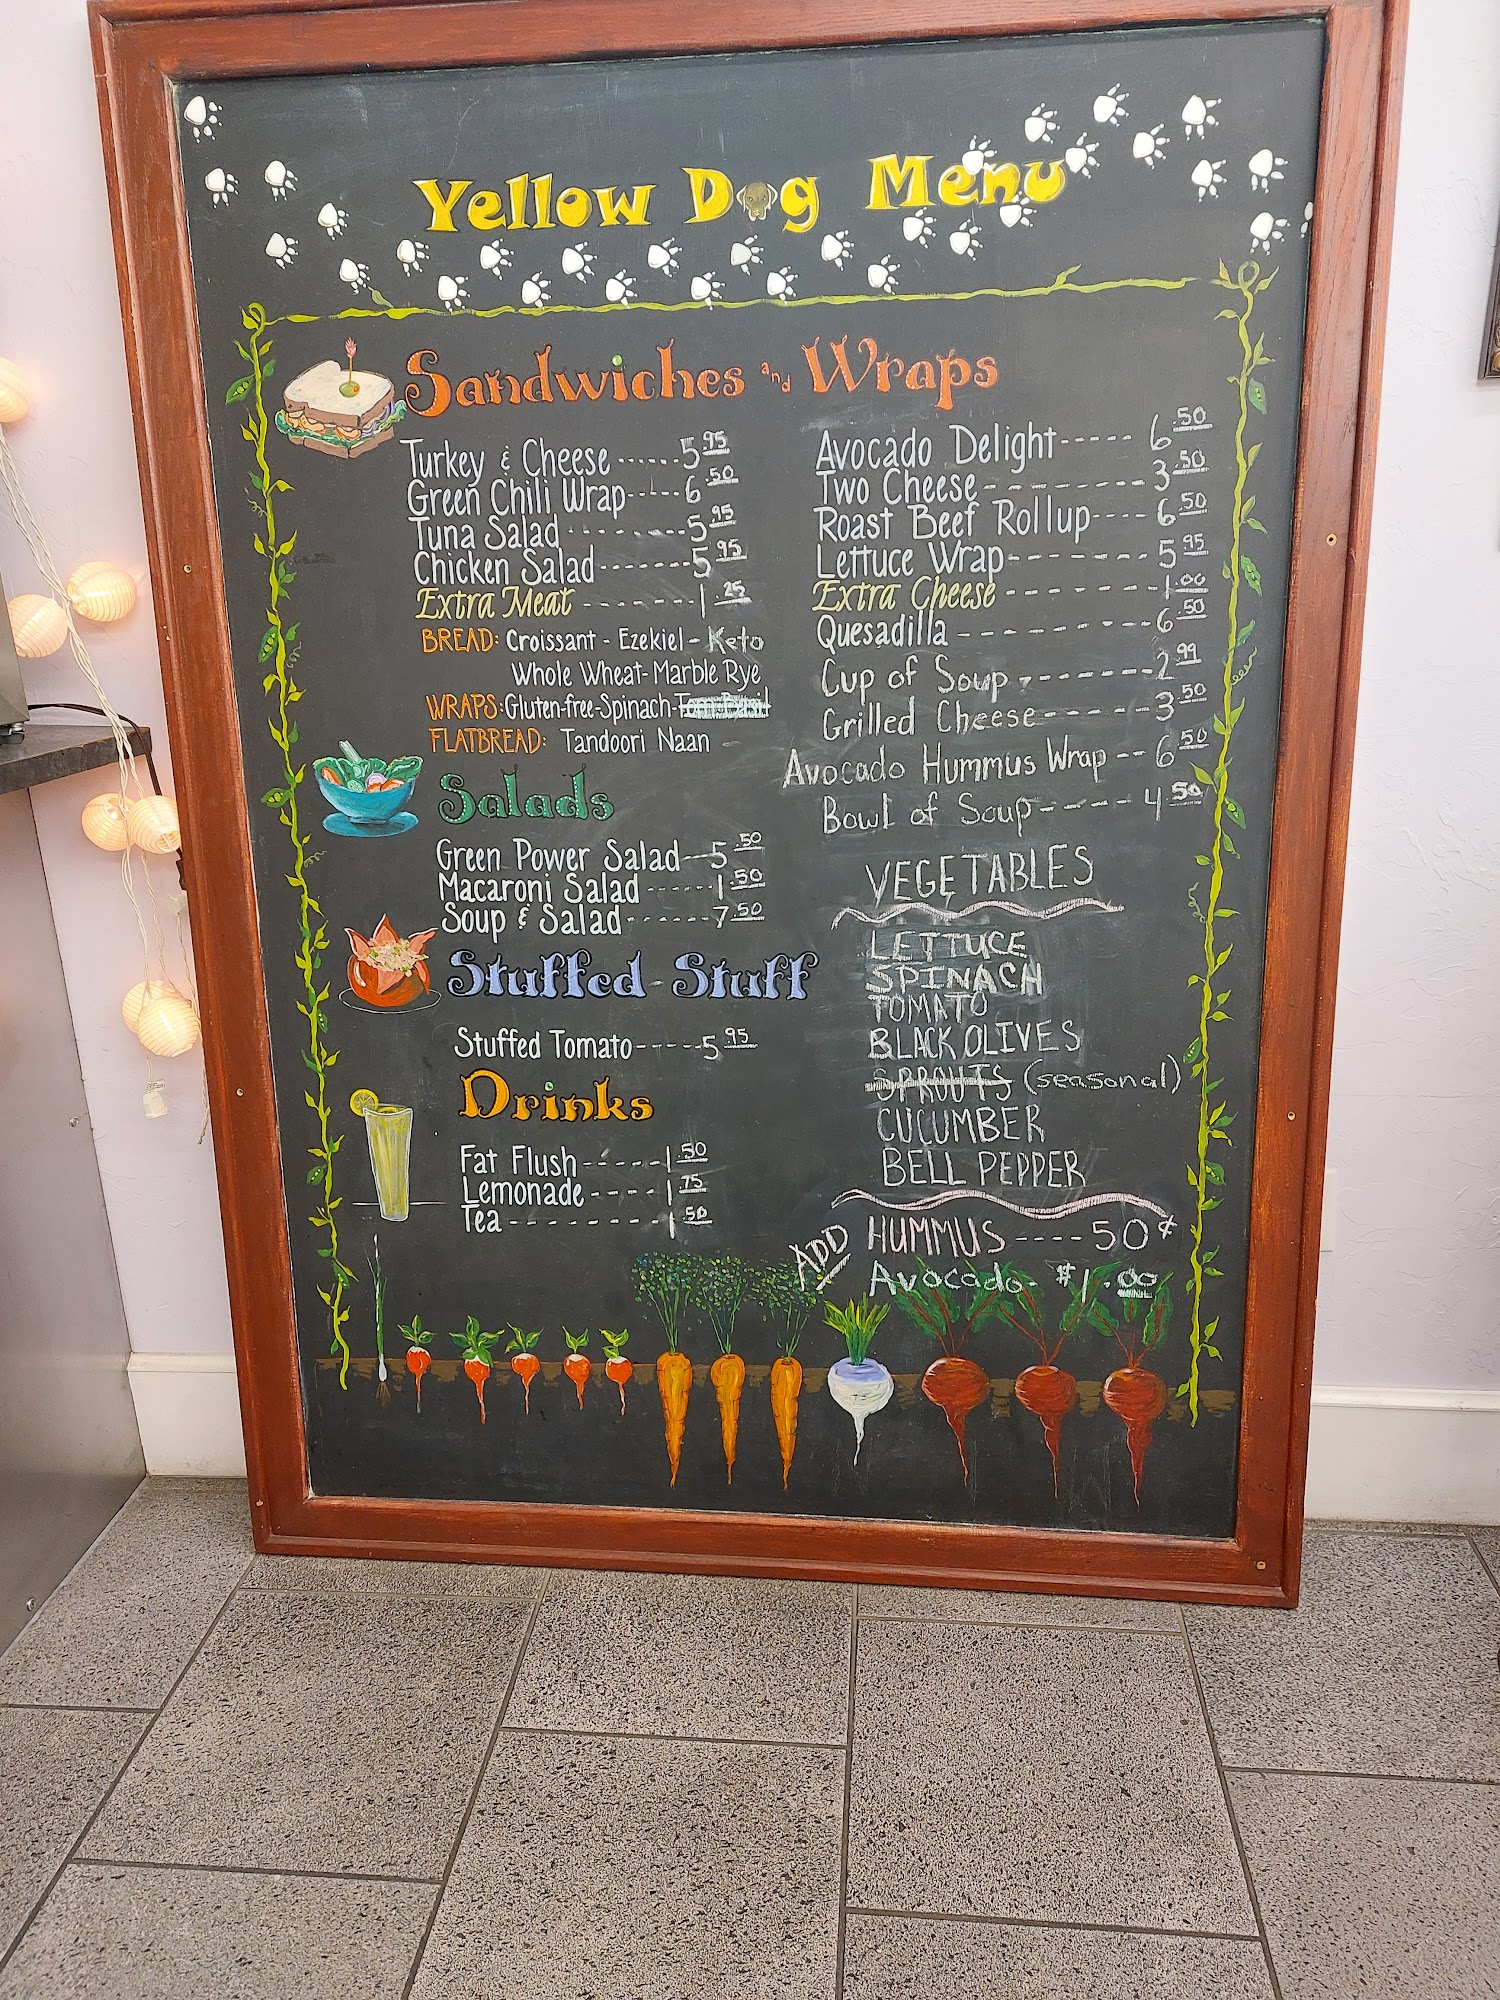 Yellow Dog Menu
Sandwiches and Wraps
Turkey & Cheese ------ 5.95
Green Chili Wrap ----- 6.50
Tuna Salad -------- 5.95
Chicken Salad ------- 5.95
Extra Meat -------- 1.25
BREAD: Croissant - Ezekiel - Keto
Whole Wheat - Marble Rye
WRAPS: Gluten-free - Spinach -
FLATBREAD: Tandoori Naan
Avocado Delight ----- 6.50
Two Cheese --------- 3.50
Roast Beef Rollup ---- 6.50
Lettuce Wrap -------- 5.95
Extra Cheese -------- 1.00
Quesadilla --------- 6.50
Cup of Soup -------- 2.99
Grilled Cheese ----- 3.50
Avocado Hummus Wrap -- 6.50
Bowl of Soup ----- 4.50
Salads
Green Power Salad -- 5.50
Macaroni Salad ------ 1.50
Soup & Salad ------ 7.50
Stuffed Stuff
Stuffed Tomato ----- 5.95
Drinks
Fat Flush ----- 1.50
Lemonade ---- 1.75
Tea --------- 1.50
VEGETABLES
LETTUCE
SPINACH
TOMATO
BLACK OLIVES
SPROUTS (seasonal)
CUCUMBER
BELL PEPPER
ADD HUMMUS ---- 50¢
Avocado - $1.00